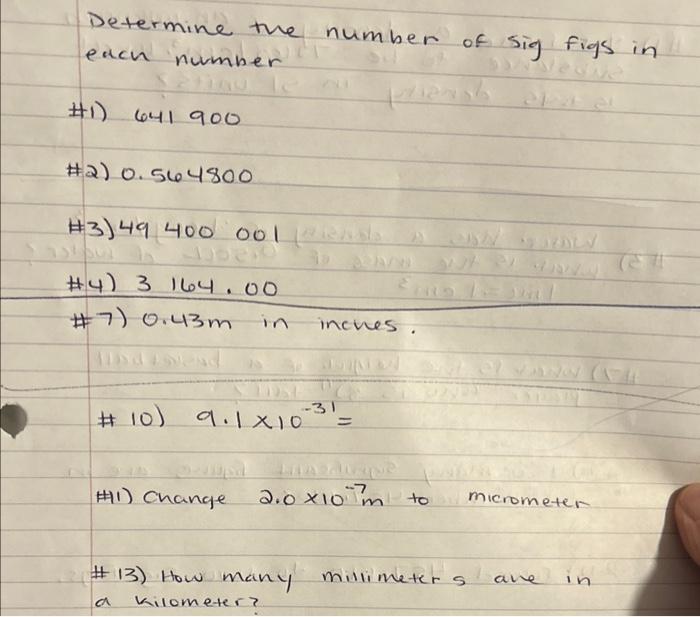 Determine the number of sig figs in
each number
#1) 641 900
#2) 0.564800
#3) 49 400 001
#4) 3 164.00
#7) 0.43m in inches.
#10) 9.1 x10⁻³¹=
#11) Change 2.0 x10⁻⁷m to micrometer
#13) How many millimeters are in
a kilometer?